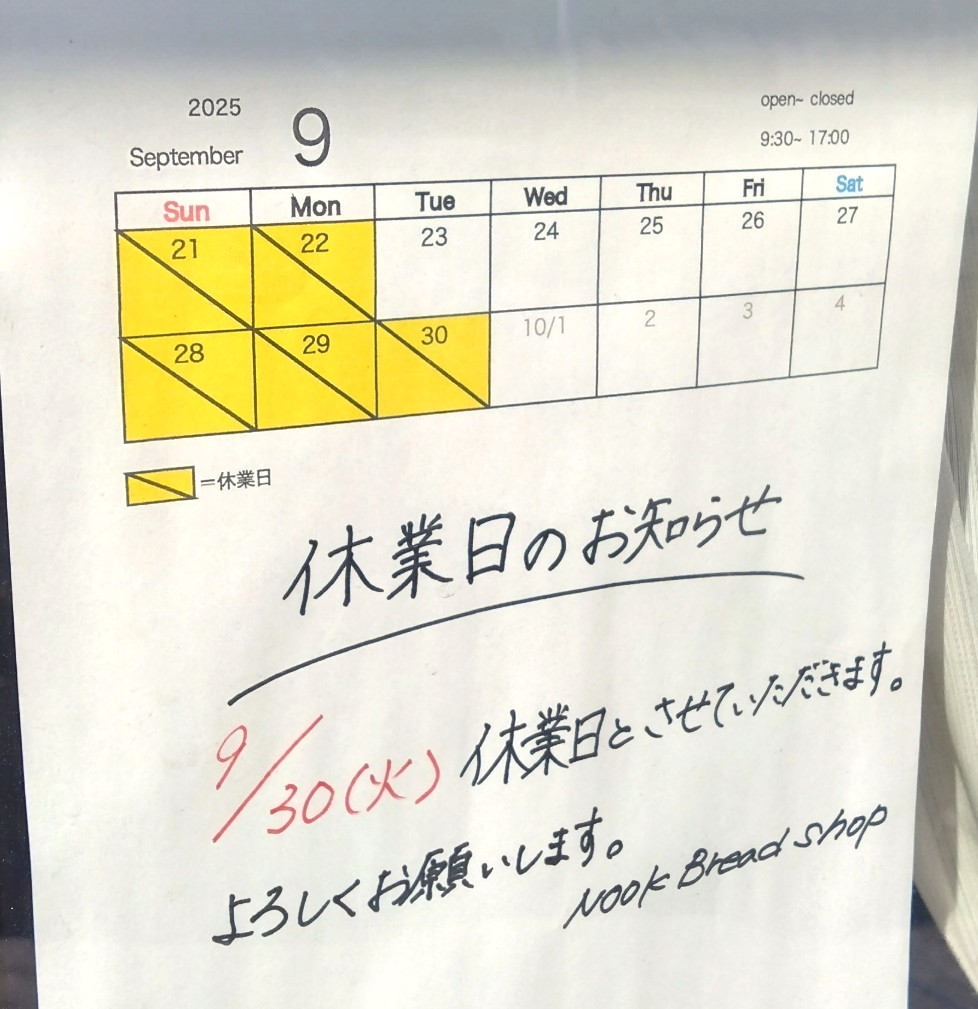 2025
September 9
open~ closed
9:30~ 17:00
Sun Mon Tue Wed Thu Fri Sat
21 22 23 24 25 26 27
28 29 30 10/1 2 3 4
=休業日
休業日のお知らせ
9/30(火) 休業日とさせていただきます。
よろしくお願いします。
Nook Bread shop